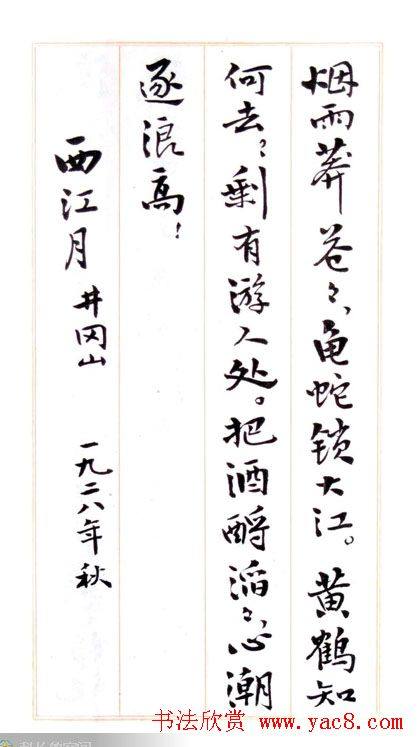 烟雨莽苍々、龟蛇锁大江。黄鹤知
何去？剩有游人处。把酒酹滔々、心潮
逐浪高！
西江月 井冈山 一九二八年秋
书法欣赏 www.yac8.com